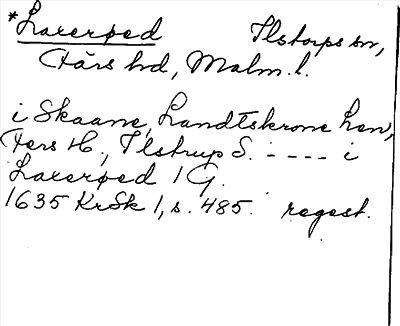 *Laxerød Ilstorps sn,
Färs hd, Malm. l.
i Skaane, Landtskrone Len,
Fers H., Ilstrup S. ---- i
Laxerød 1 G.
1635 KrSk 1, s. 485. regest.